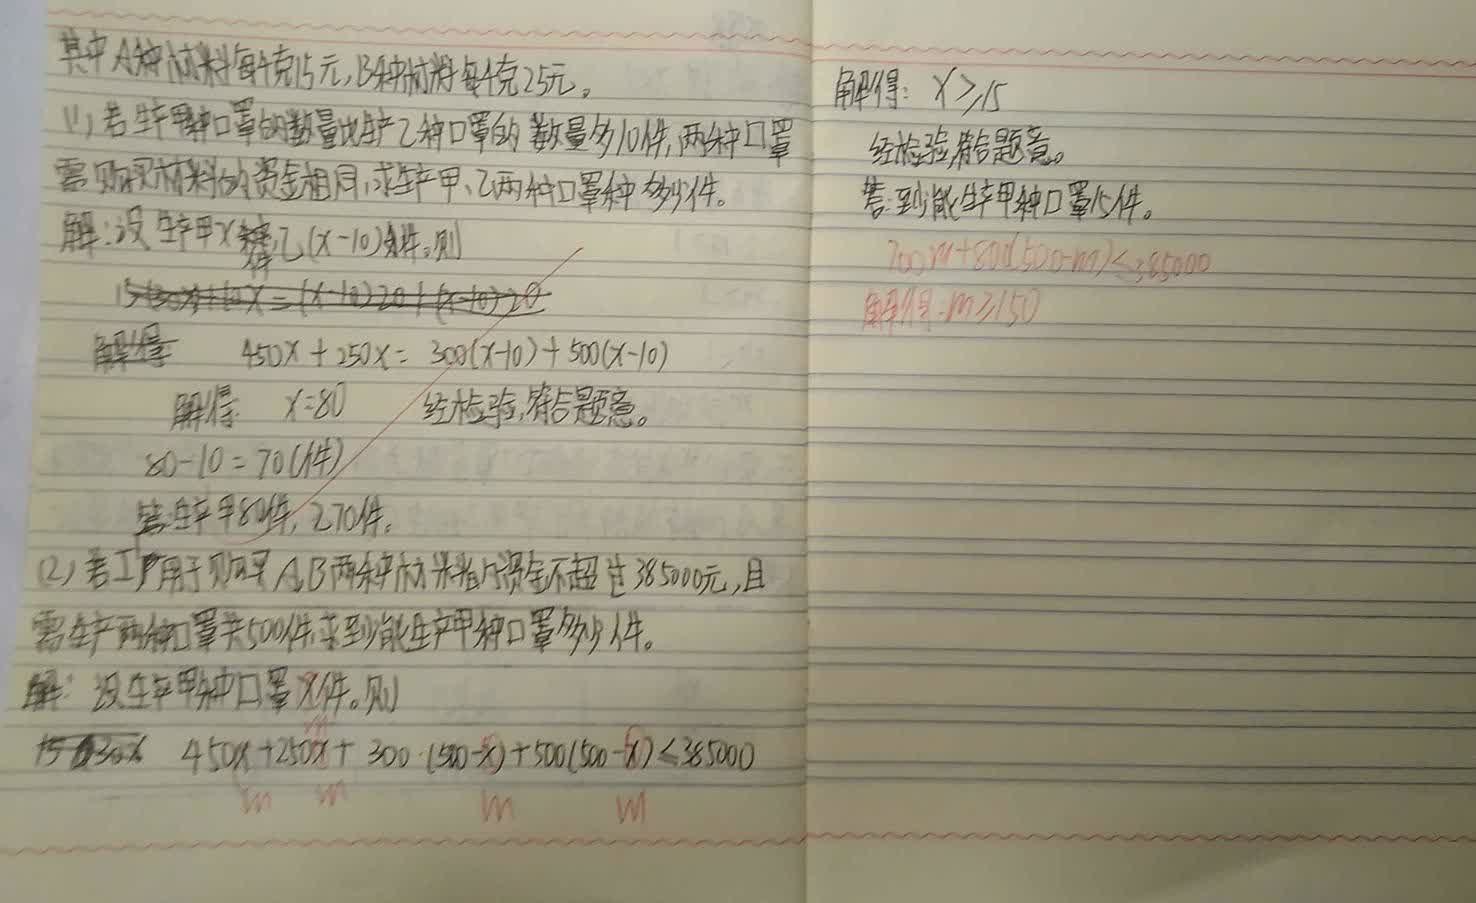 其中A种材料每千克15元,B种材料每千克25元。
(1)若生产甲种口罩的数量比生产乙种口罩的数量多10件,两种口罩
需购买材料的资金相同,求生产甲、乙两种口罩种多少件。
解:设生产甲x件,乙(x-10)件。则
解得 450x+250x=300(x-10)+500(x-10)
解得: x=80 经检验,符合题意。
80-10=70(件)
答:生产甲80件,乙70件。
(2)若工厂用于购买A,B两种材料的资金不超过385000元,且
需生产两种口罩共500件,求至少能生产甲种口罩多少件。
解:设生产甲种口罩x件。则
m
15 30x 450x+250x+300·(500-x)+500(500-x)≤385000
m m m m
解得: x≥15
经检验,符合题意。
答:至少能生产甲种口罩15件。
700m+800(500-m)≤385000
解得:m≥150